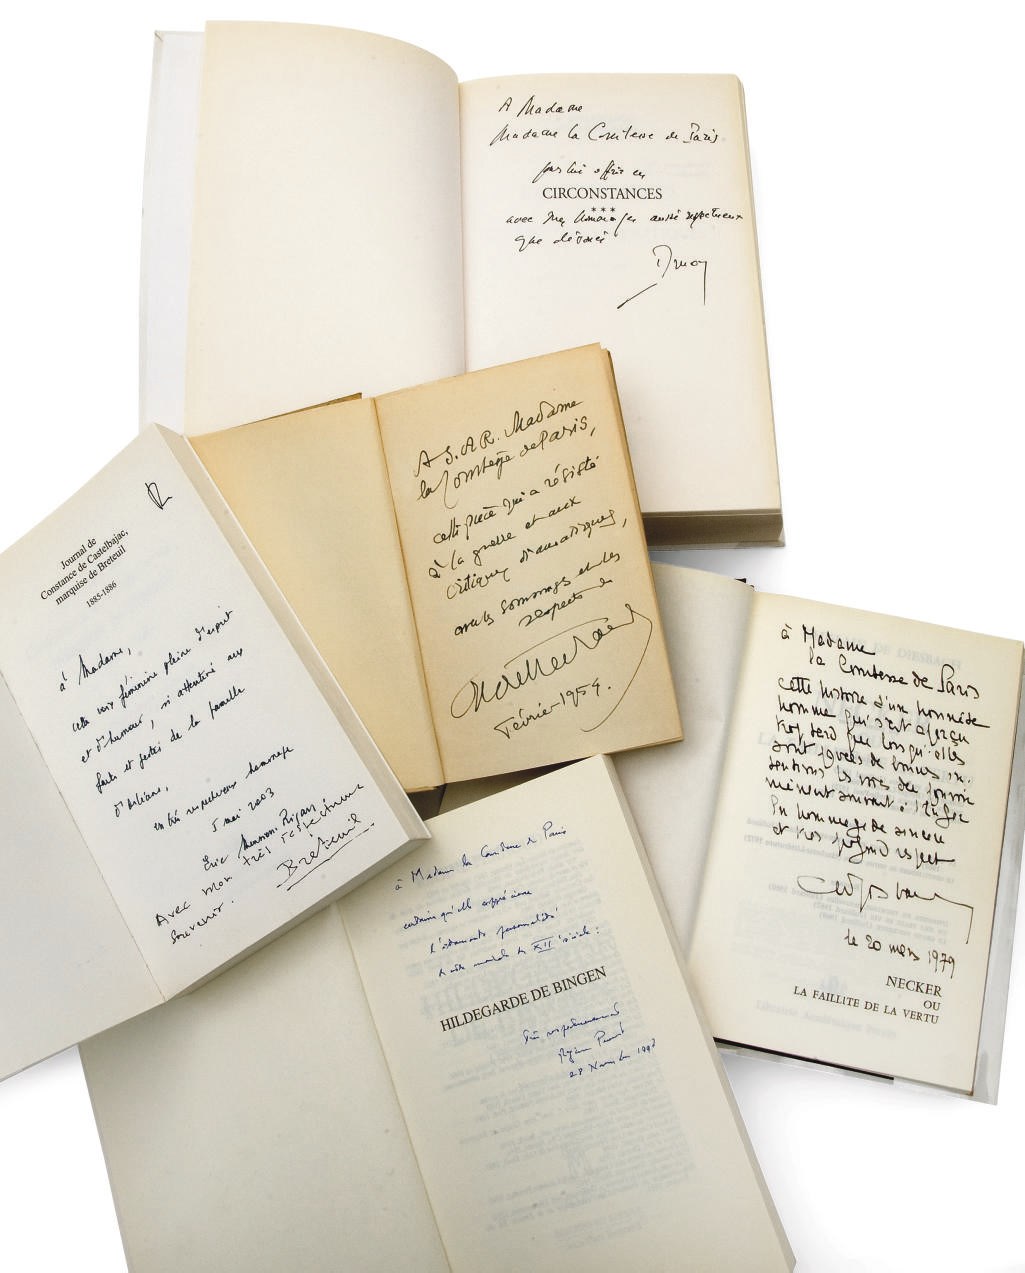 A Madame
Madame la Comtesse de Paris
pour lui offrir ces
CIRCONSTANCES
***
avec mes hommages aussi respectueux
que dévoués
Druon
A S.A.R. Madame
la Comtesse de Paris,
cette pièce qui a résisté
à la guerre et aux
critiques dramatiques,
avec les hommages et les
respects de
Février 1954.
Journal de
Constance de Castelbajac,
marquise de Breteuil
1885-1886
à Madame,
cette voix féminine pleine d'esprit
et d'humour, si attentive aux
faits et gestes de la famille
d'Orléans,
en très respectueux hommage
5 mai 2003
Éric Mension-Rigau
Avec mon très respectueux
souvenir.
Breteuil.
à Madame
la Comtesse de Paris
cette histoire d'un honnête
homme qui s'est aperçu
trop tard que lorsqu'elles
sont pavées de bonnes in-
tentions les voies du pouvoir
mènent souvent à l'enfer
En hommage de sincère
et très profond respect
le 20 mars 1979
NECKER
OU
LA FAILLITE DE LA VERTU
à Madame la Comtesse de Paris
certaine qu'elle appréciera
l'étonnante personnalité
du XIIe siècle :
HILDEGARDE DE BINGEN
Très respectueusement
Régine Pernoud